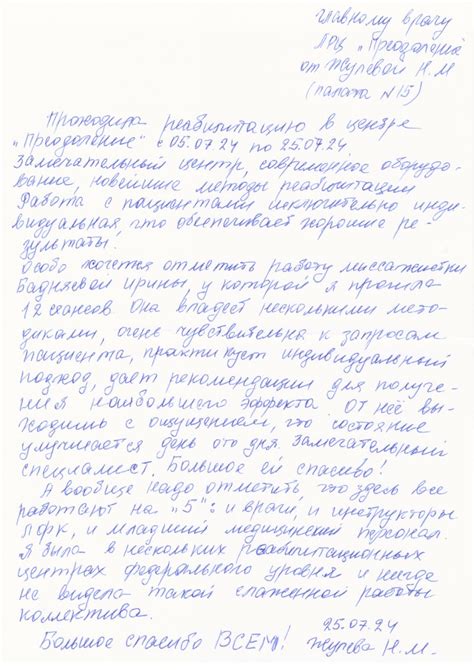 Главному врачу
ЛРЦ "Преодоление"
от Жулевой Н.М
(палата №15)
Проходила реабилитацию в центре
"Преодоление" с 05.07.24 по 25.07.24.
Замечательный центр, современное оборудо-
вание, новейшие методы реабилитации
Работа с пациентами исключительно инди-
видуальная, что обеспечивает хорошие ре-
зультаты.
Особо хочется отметить работу массажистки
Бадняевой Ирины, у которой я прошла
12 сеансов. Она владеет несколькими мето-
диками, очень чувствительна к запросам
пациента, практикует индивидуальный
подход, дает рекомендации для получе-
ния наибольшего эффекта. От неё вы-
ходишь с ощущением, что состояние
улучшается день ото дня. Замечательный
специалист. Большое ей спасибо!
А вообще надо отметить, что здесь все
работают на "5": и врачи, и инструкторы
ЛФК, и младший медицинский персонал.
Я была в нескольких реабилитационных
центрах федерального уровня и нигде
не видела такой слаженной работы
коллектива.
25.07.24
Большое спасибо ВСЕМ! Жулева Н.М.